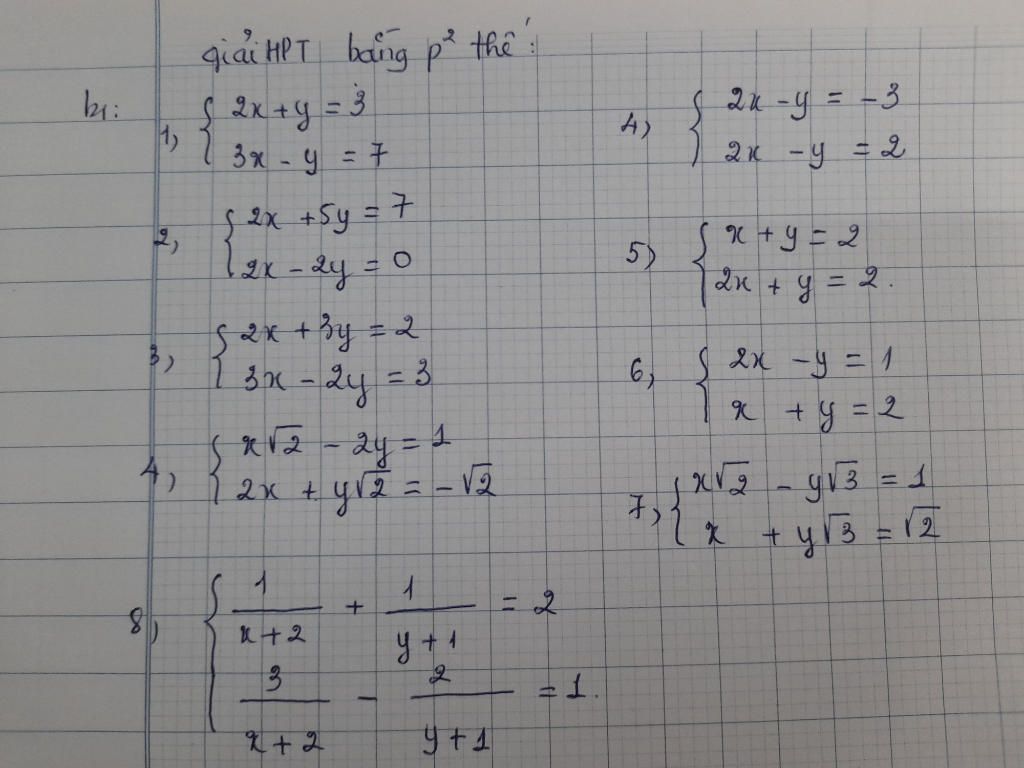 giải HPT bằng p² thế:
b1:
1, { 2x + y = 3
3x - y = 7
2, { 2x + 5y = 7
2x - 2y = 0
3, { 2x + 3y = 2
3x - 2y = 3
4, { x√2 - 2y = 1
2x + y√2 = -√2
4, { 2x - y = -3
2x - y = 2
5) { x + y = 2
2x + y = 2.
6, { 2x - y = 1
x + y = 2
7, { x√2 - y√3 = 1
x + y√3 = √2
8, { 1/(x+2) + 1/(y+1) = 2
3/(x+2) - 2/(y+1) = 1.